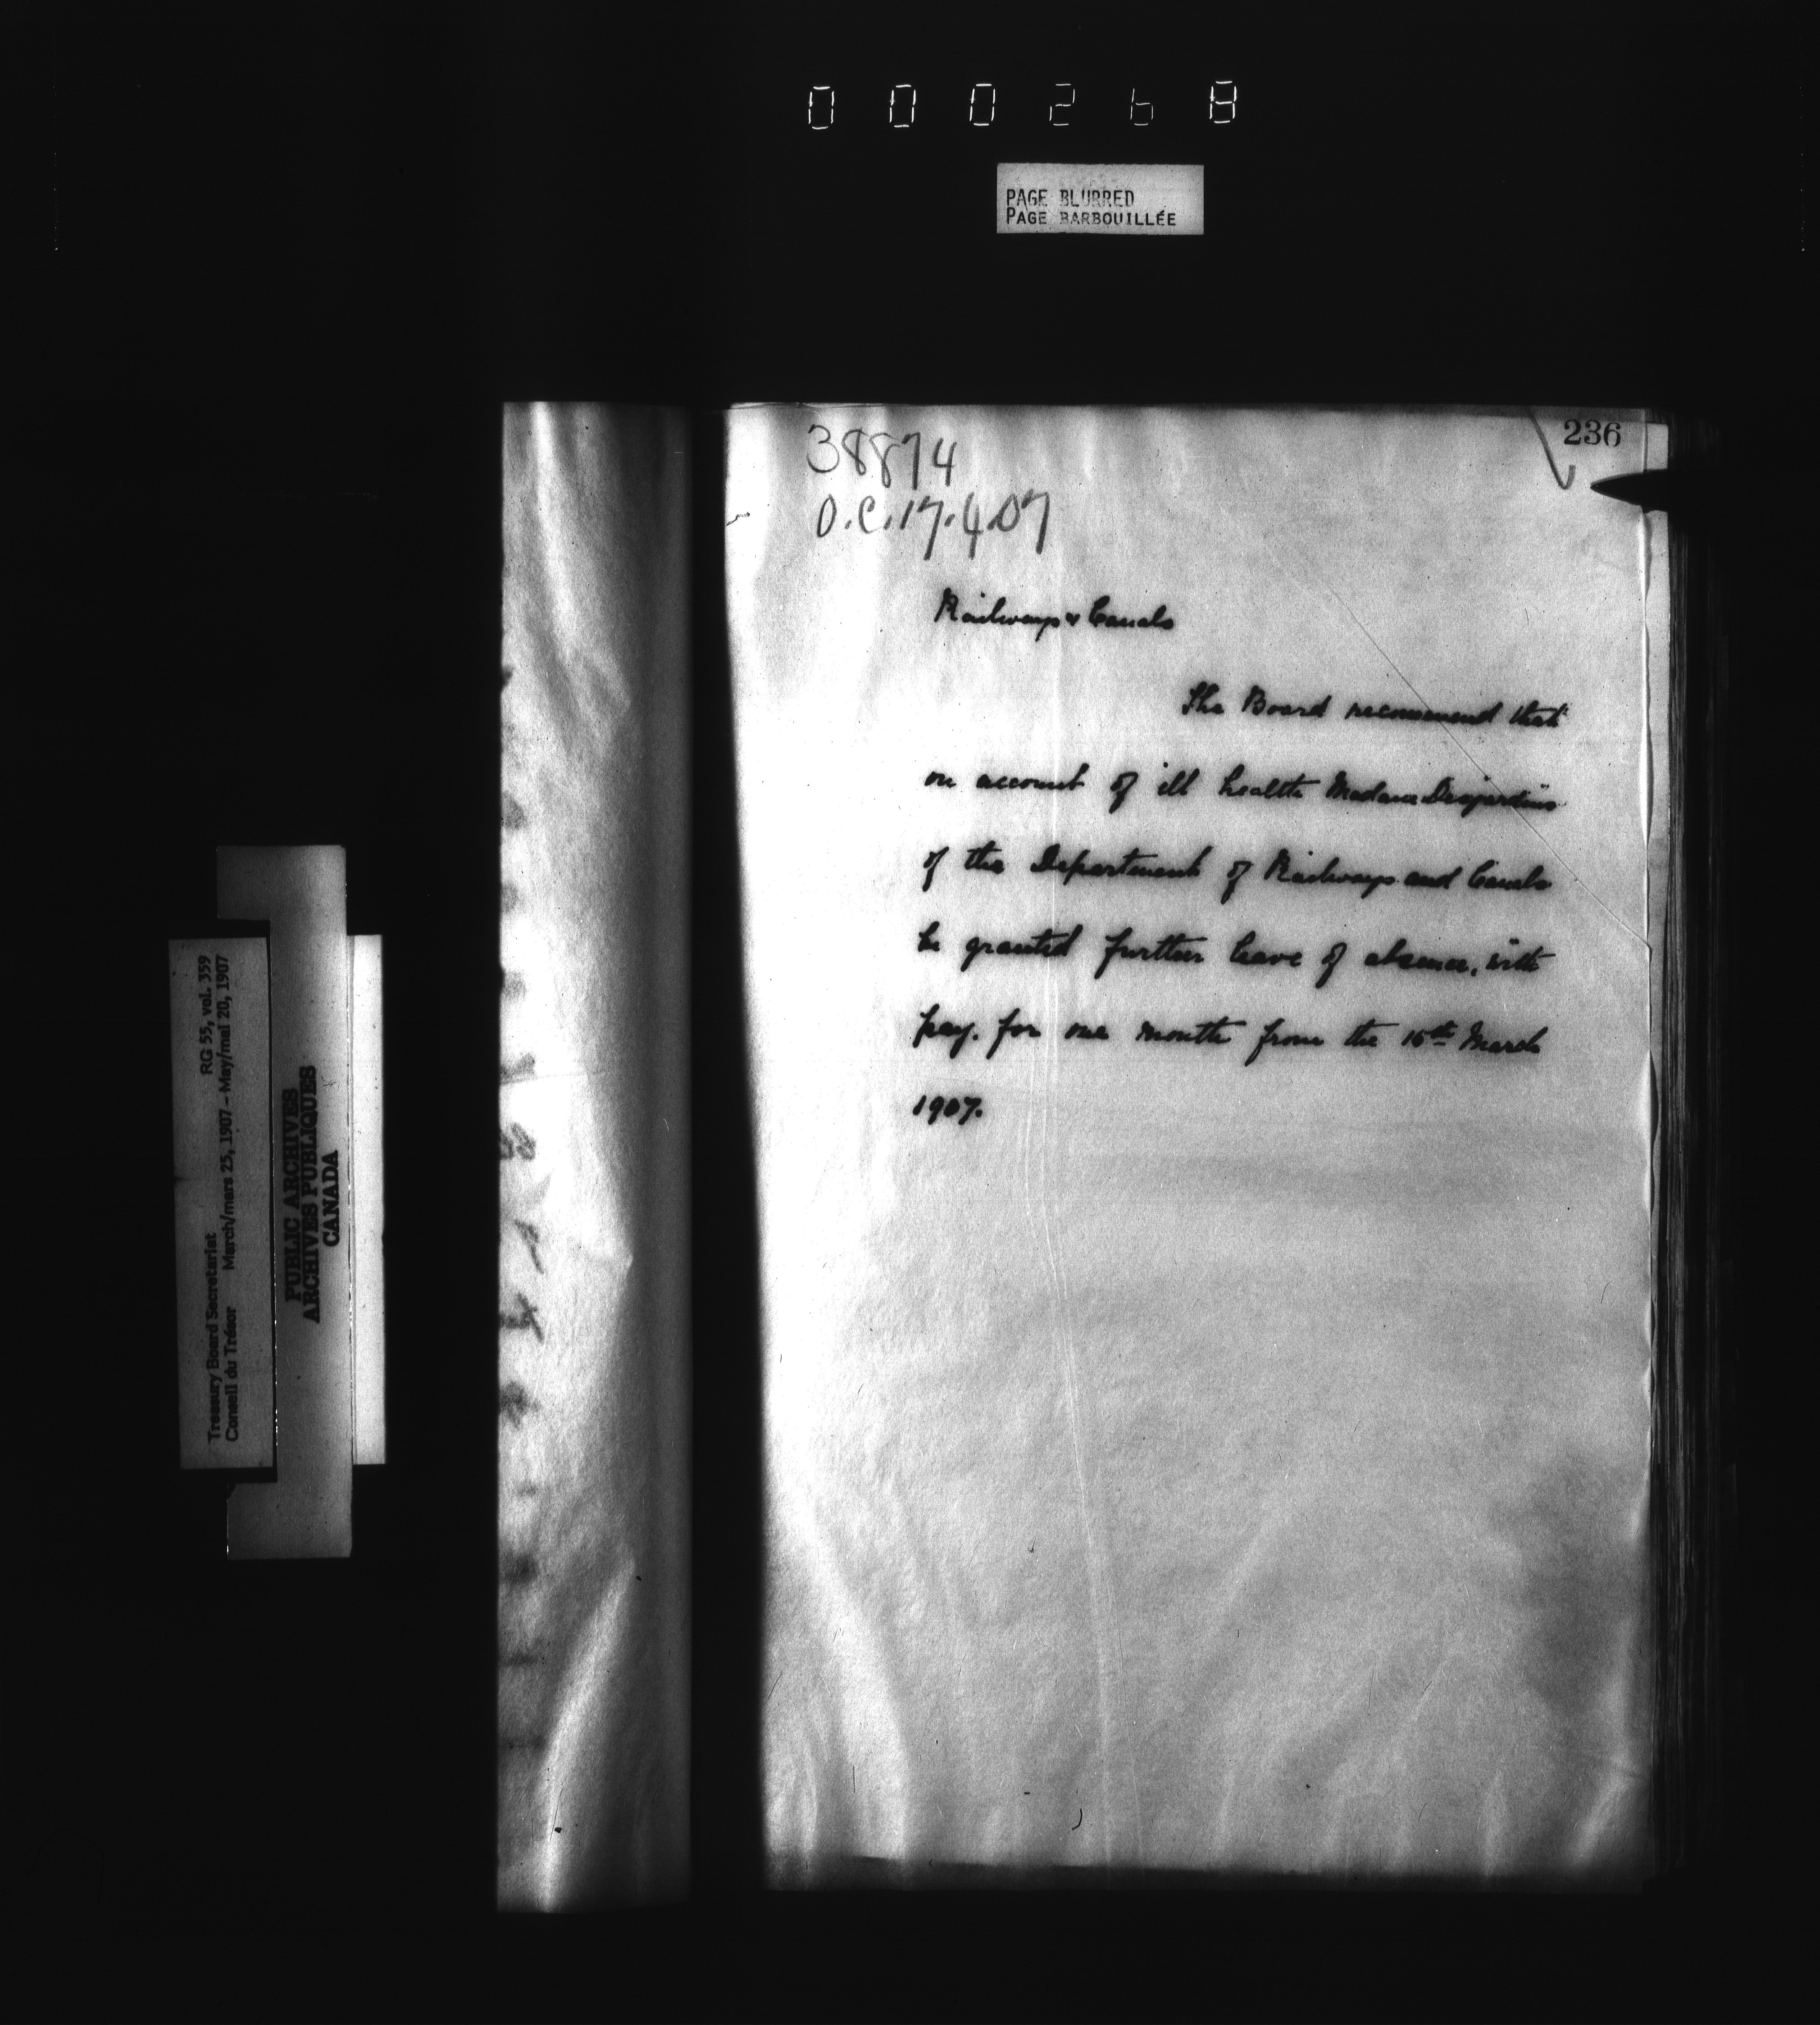 000268
PAGE BLURRED
PAGE BARBOUILLÉE
236
38874
O.C.17.4.07
Railways & Canals
The Board recommend that
on account of ill health Madame Desjardins
of the Department of Railways and Canals
be granted further leave of absence, with
pay. for one month from the 15th March
1907.
Treasury Board Secretariat RG 55, vol. 359
Conseil du Trésor March/mars 25, 1907 - May/mai 20, 1907
PUBLIC ARCHIVES
ARCHIVES PUBLIQUES
CANADA